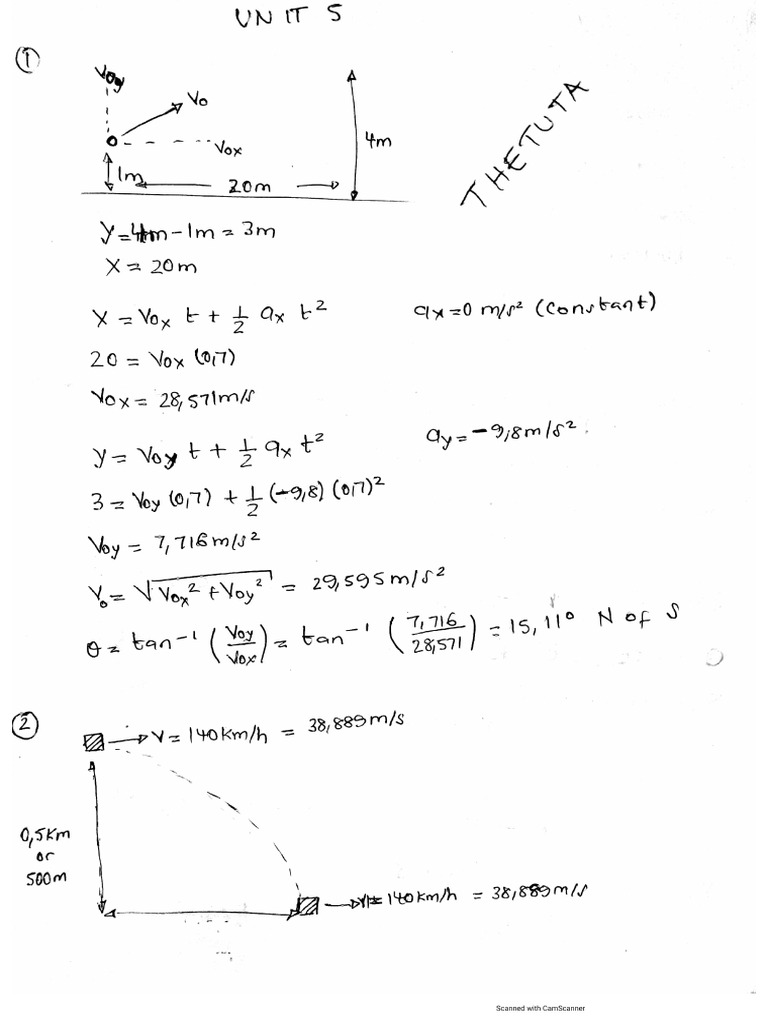 UNIT 5
①
Voy
Vo
Vox
1m
20m
4m
THETUTA
y=4m-1m=3m
X=20m
X=Vox t + 1/2 ax t²
ax=0 m/s² (constant)
20=Vox (0,7)
Vox=28,571m/s
y=Voy t + 1/2 ax t²
ay=-9,8m/s².
3=Voy (0,7) + 1/2 (-9,8) (0,7)²
Voy=7,716m/s²
Vo=√Vox²+Voy² = 29,595m/s²
θ=tan⁻¹ (Voy/Vox) = tan⁻¹ (7,716/28,571) = 15,11° N of S
②
V=140km/h = 38,889m/s
0,5km
or
500m
=140km/h = 38,889m/s
Scanned with CamScanner